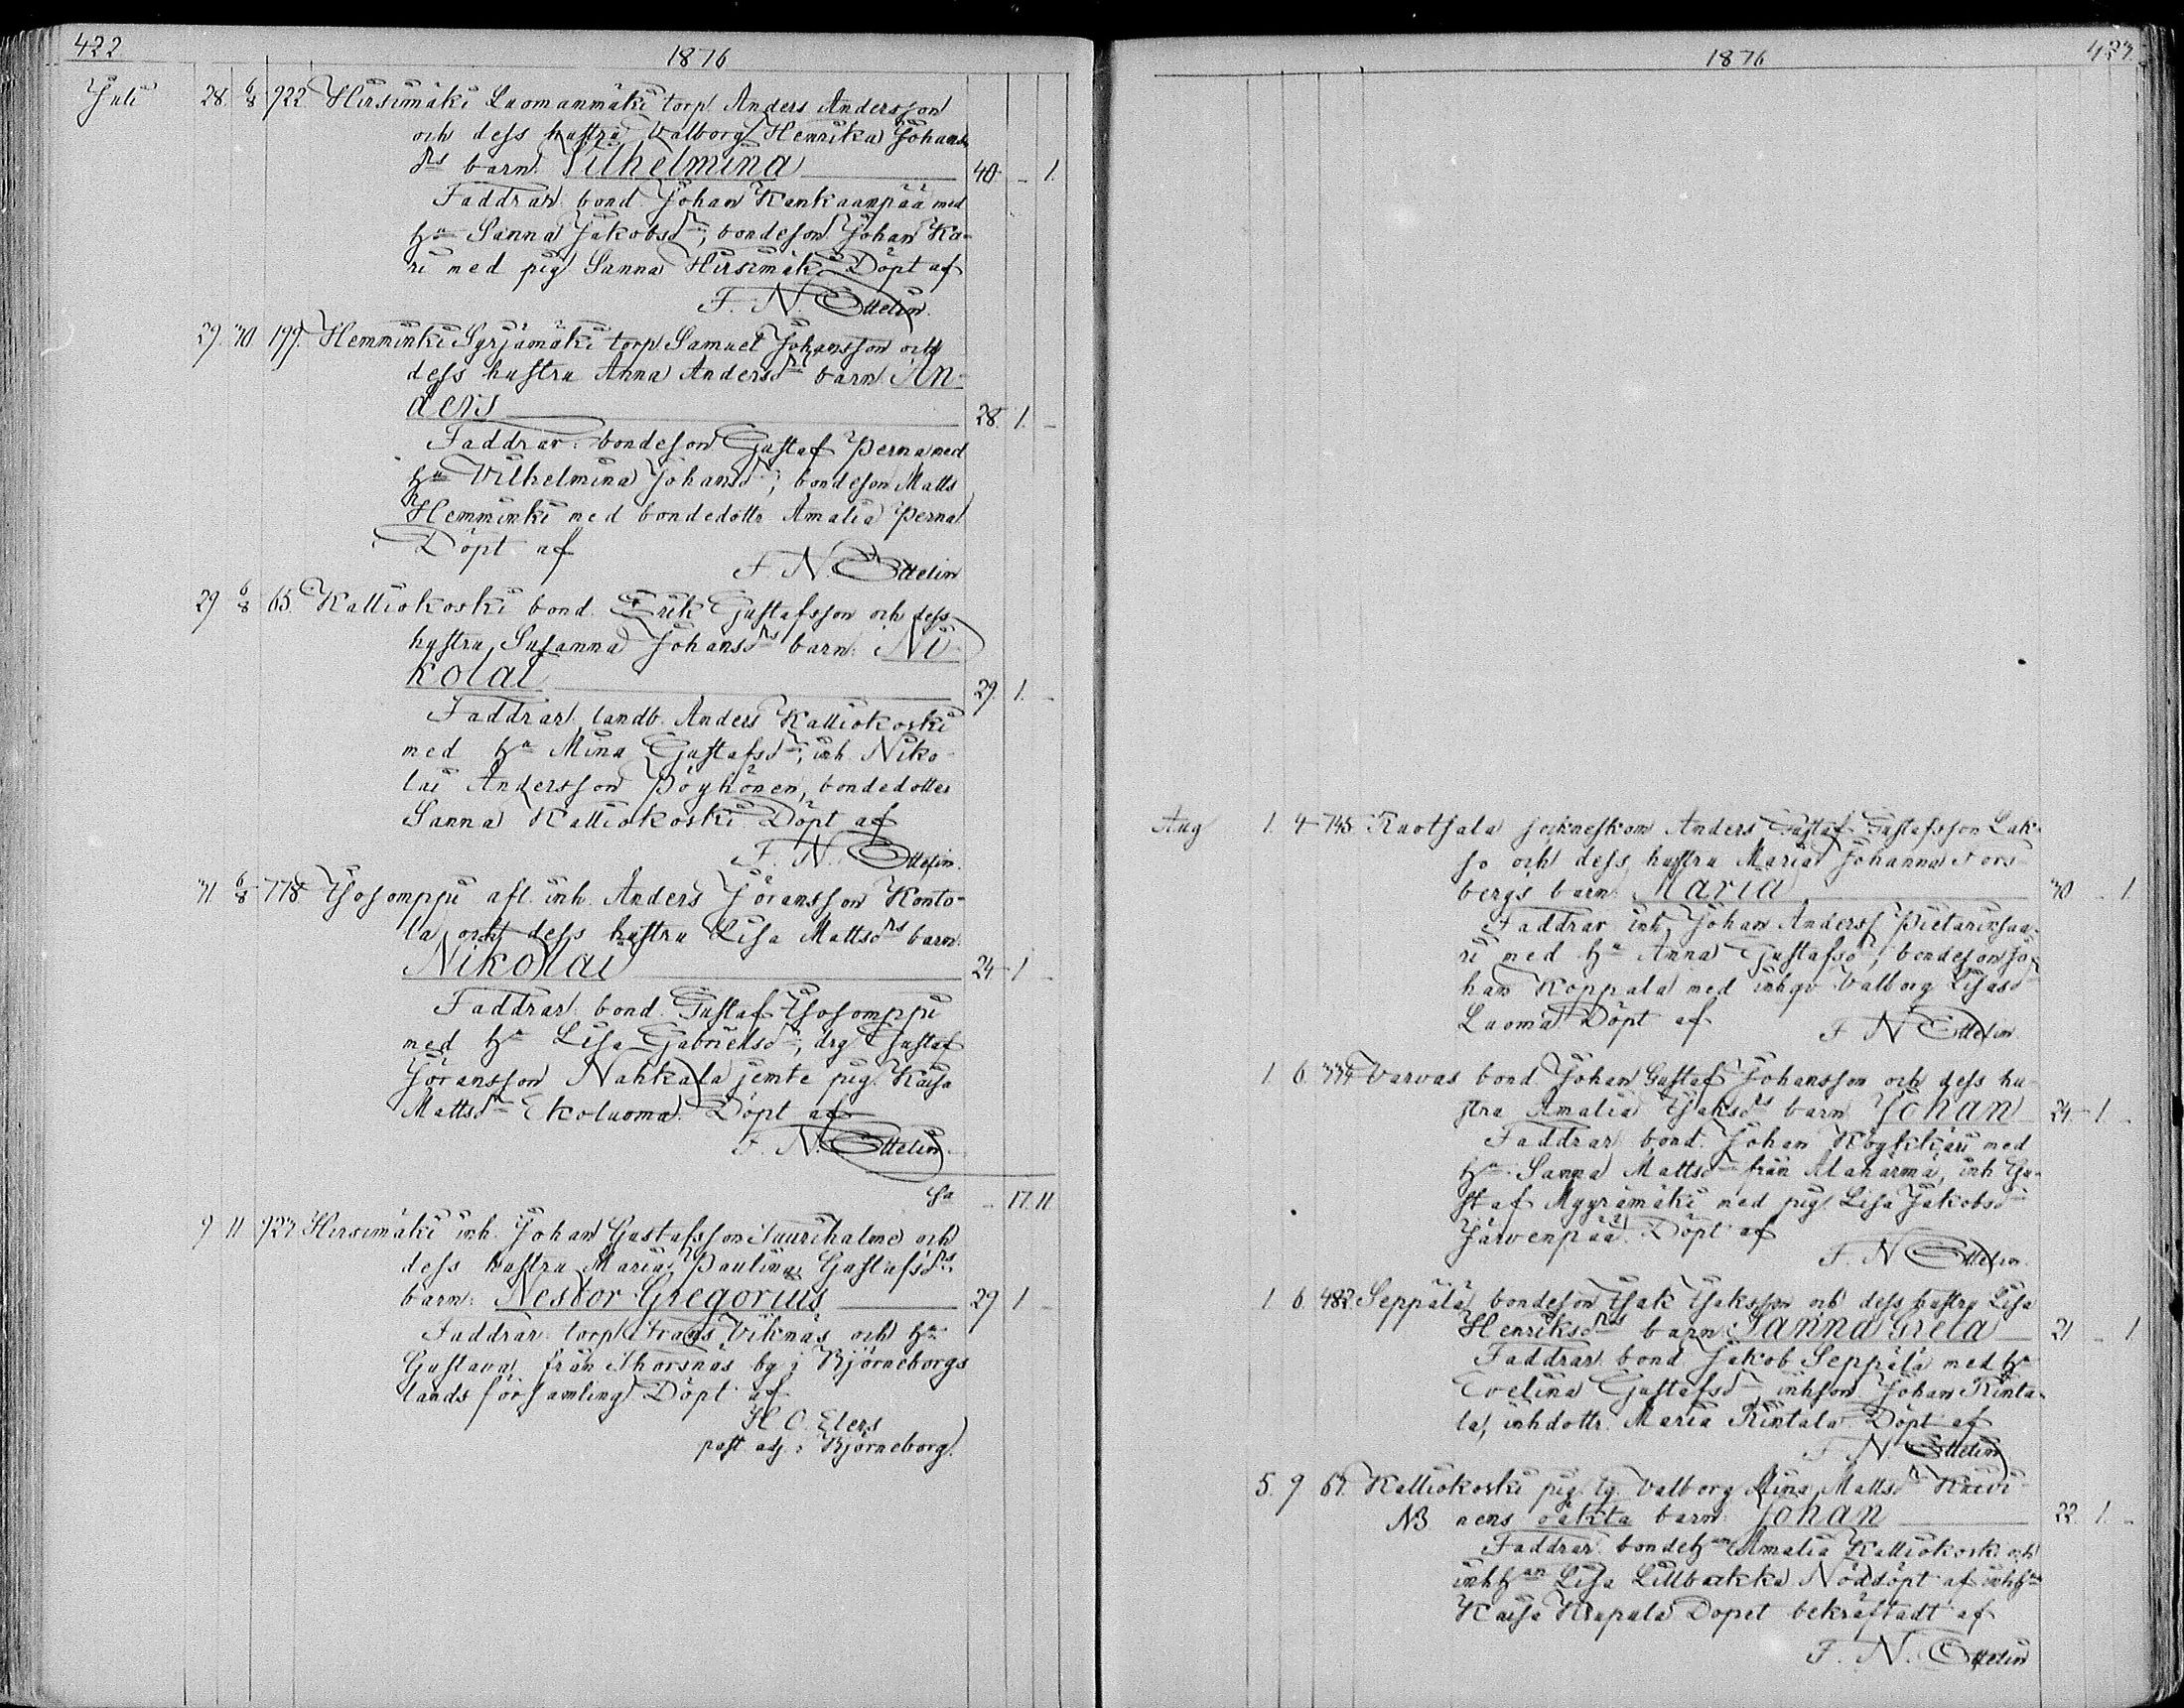 422
1876
Juli 28. 6/8 922 Hirsimäki Luomanmäki torp. Anders Andersson
och dess hustru Valborg Henrika Johans
drs barn: Vilhelmina 40 - 1.
Faddrar: bond. Johan Kankaanpää med
hu Sanna Jakobsdr, bondeson Johan Ka-
ri med pig. Sanna Hirsimäki Döpt af
F. N. Ottelin.
29. 30. 199. Hemminki Syrjämäki torp. Samuel Johansson och
dess hustru Anna Andersdrs barn: An-
ders 28. 1. -
Faddrar: bondeson Gustaf Perna med
hu Vilhelmina Johansdr; bondeson Matts
Hemminki med bondedottr Amalia Perna
Döpt af
F. N. Ottelin
29 6/8 65. Kalliokoski bond. Erik Gustafsson och dess
hustru Susanna Johansdrs barn: Ni-
kolai 29. 1. -
Faddrar: landb. Anders Kalliokoski
med hu Mina Gustafsdr, inh. Niko-
lai Andersson Pöyhönen, bondedotter
Sanna Kalliokoski Döpt af
F. N. Ottelin.
31 6/8 778 Isosomppi afl. inh. Anders Göransson Konto-
la och dess hustru Lisa Mattsdrs barn:
Nikolai 24 1 -
Faddrar: bond. Gustaf Isosomppi
med hu Lisa Gabrielsdr, drg Gustaf
Göransson Nahkala jemte pig. Kaisa
Mattsdr Ekoluoma. Döpt af
F. N. Ottelin
Sa - 17. 11.
9 11 923 Hirsimäki inh. Johan Gustafsson Saarihalme och
dess hustru Maria Paulina Gustafsdrs
barn: Nestor Gregorius 29 1 -
Faddrar: torp. Frans Viknäs och hu
Gustava från Thorsnäs by i Björneborgs
lands församling Döpt af
H. O. Elers
past. adj. i Björneborg.
1876
423.
Aug 1. 4 745 Ruotsala socknesskom. Anders Gustaf Gustafsson Lak-
so och dess hustru Maria Johanna Fors-
bergs barn: Maria 30 - 1.
Faddrar inh. Johan Anderss Pietarinsaa-
ri med hu Anna Gustafsdr, bondeson Jo-
han Koppala med inhqv Valborg Lisasdr
Luoma Döpt af F N Ottelin.
1. 6. 334 Varvas bond. Johan Gustaf Johansson och dess hu-
stru Amalia Isaksdrs barn Johan 24 1. -
Faddrar bond. Johan Köykkäri med
hu Sanna Mattsdr från Alahärmä, inh Gu-
staf Myyrämäki med pig. Lisa Jakobsdr
Järvenpää. Döpt af
F. N Ottelin.
1 6. 482 Seppälä bondeson Isak Isaksson och dess hustru Lisa
Henriksdrs barn: Sanna Greta 21 - 1
Faddrar: bond Jakob Seppälä med hu
Evelina Gustafsdr, inhson Johan Rinta-
la, inhdottr. Maria Rintala Döpt af
F. N. Ottelin
5. 9 67. Kalliokoski pig. Valborg Mina Mattsdr Kaivi-
NB. nens oäkta barn: Johan 22. 1. -
Faddrar: bondehun Amalia Kalliokoski och
inhhun Lisa Lillbakka Nöddöpt af inhhun
Kaisa Krapula Dopet bekräftadt af
F. N. Ottelin